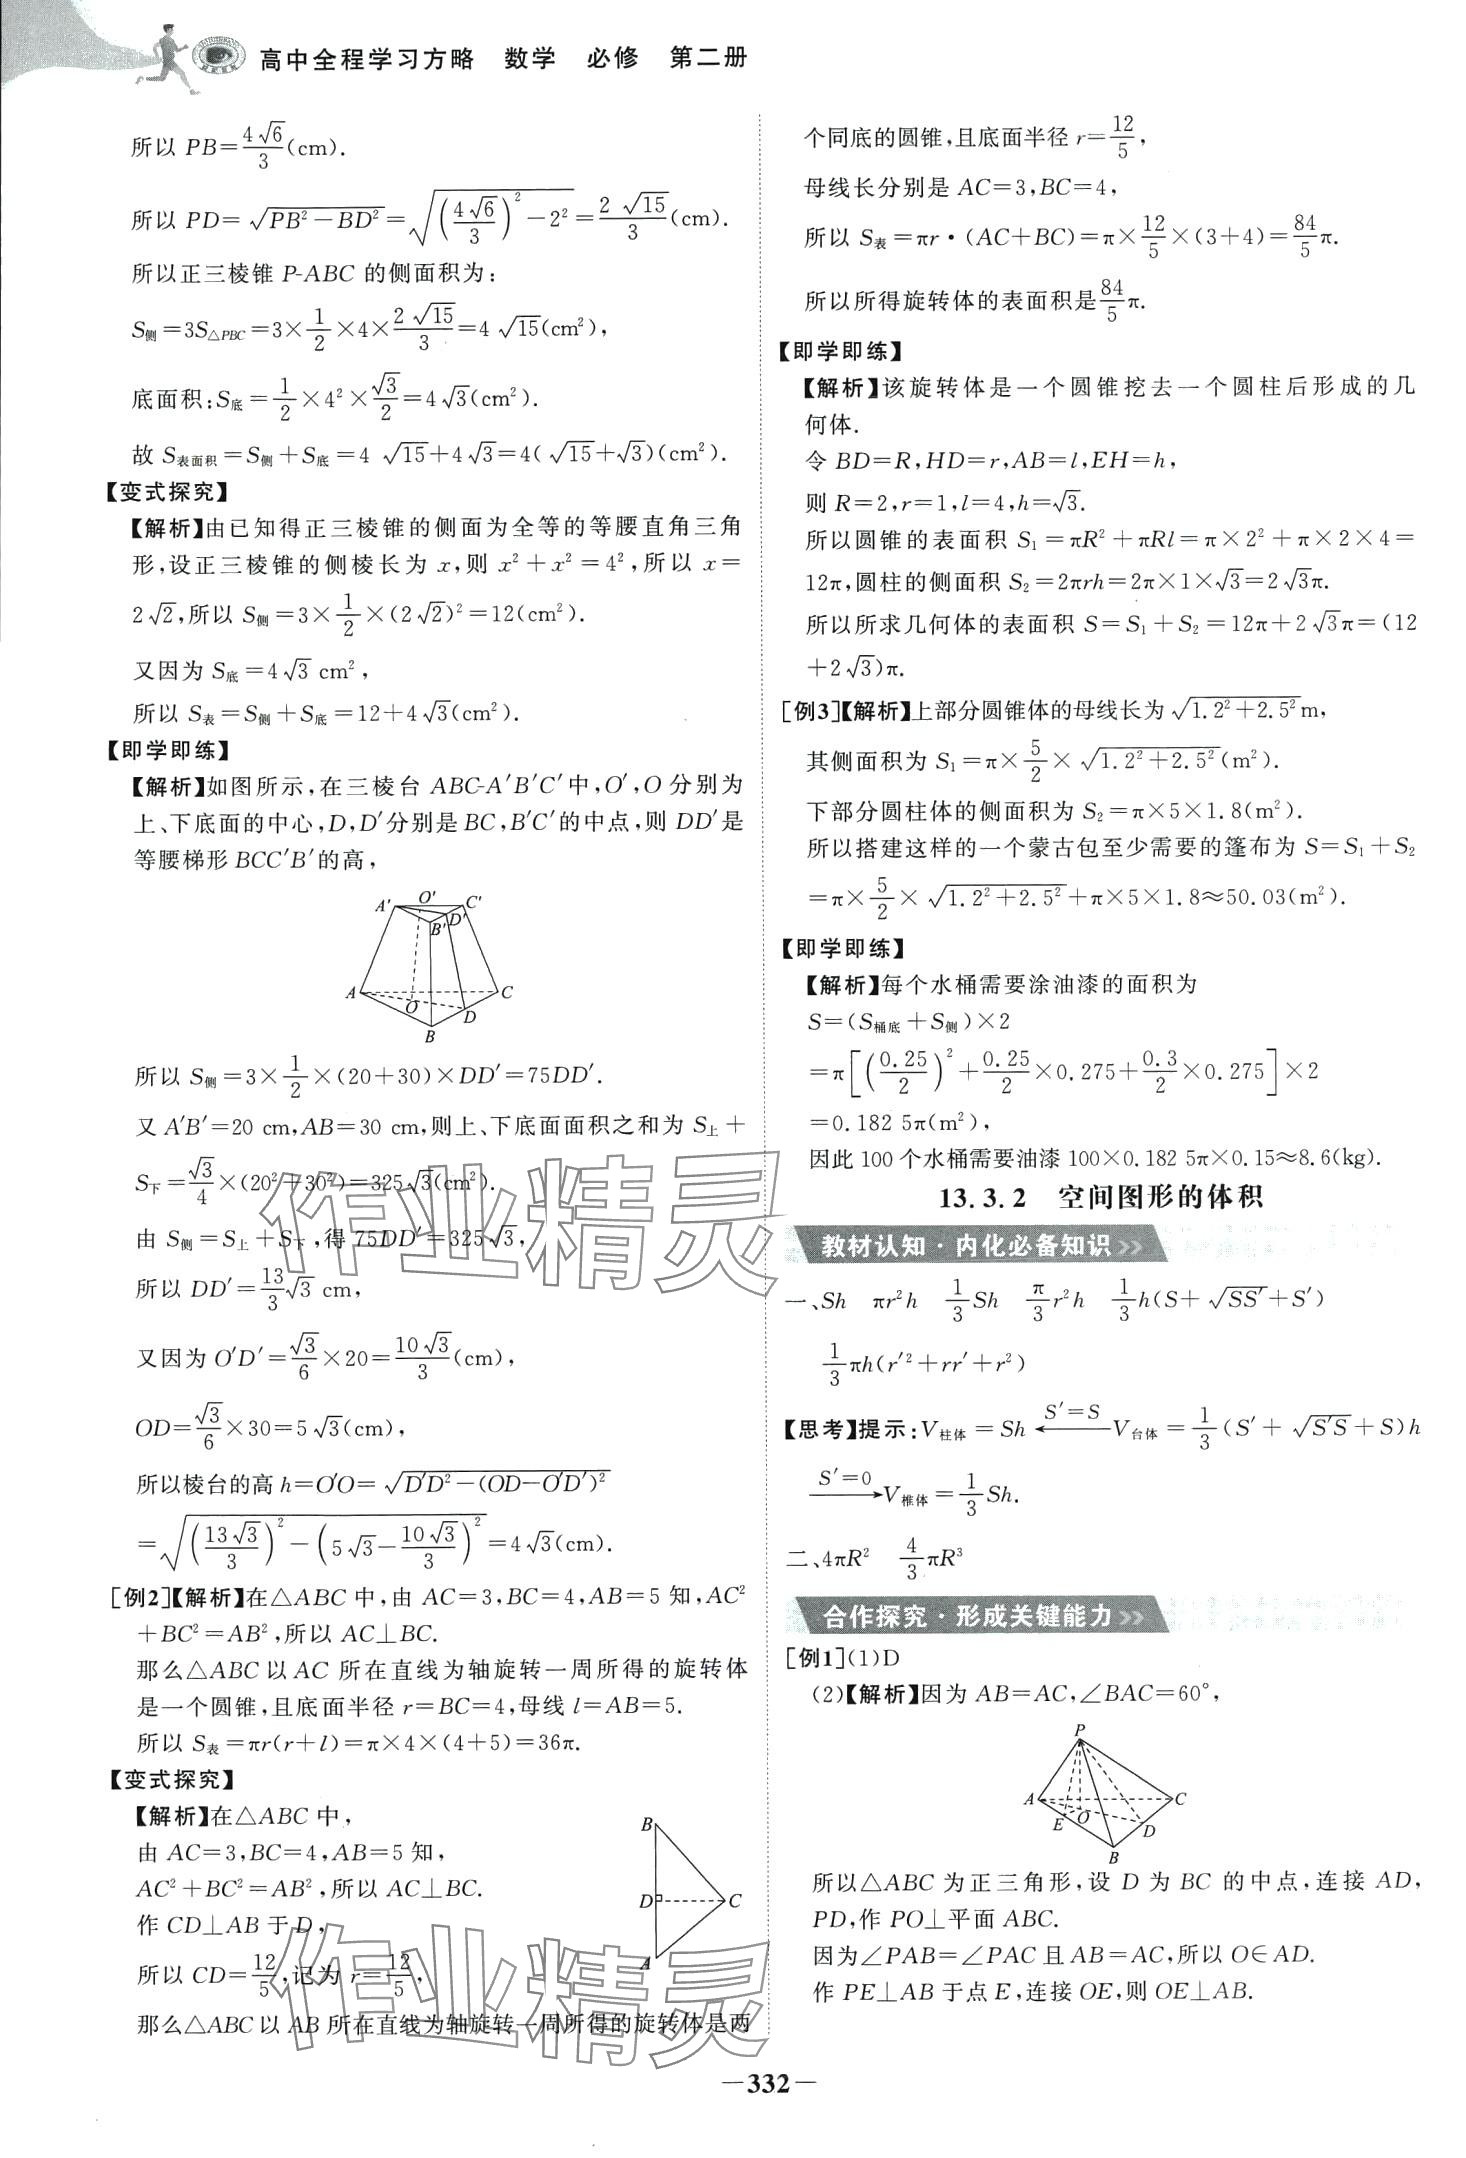 高中全程学习方略 数学 必修 第二册
所以 PB=4√6/3(cm).
所以 PD=√(PB²-BD²)=√((4√6/3)²-2²)=2√15/3(cm).
所以正三棱锥 P-ABC 的侧面积为:
S侧=3S△PBC=3×1/2×4×2√15/3=4√15(cm²),
底面积:S底=1/2×4²×√3/2=4√3(cm²).
故 S表面积=S侧+S底=4√15+4√3=4(√15+√3)(cm²).
【变式探究】
【解析】由已知得正三棱锥的侧面为全等的等腰直角三角
形,设正三棱锥的侧棱长为 x,则 x²+x²=4²,所以 x=
2√2,所以 S侧=3×1/2×(2√2)²=12(cm²).
又因为 S底=4√3 cm²,
所以 S表=S侧+S底=12+4√3(cm²).
【即学即练】
【解析】如图所示,在三棱台 ABC-A′B′C′中,O′,O 分别为
上、下底面的中心,D,D′分别是 BC,B′C′的中点,则 DD′是
等腰梯形 BCC′B′的高,
A′ O′ C′
B′ D′
A O C
D
B
所以 S侧=3×1/2×(20+30)×DD′=75DD′.
又 A′B′=20 cm,AB=30 cm,则上、下底面面积之和为 S上+
S下=√3/4×(20²+30²)=325√3(cm²).
由 S侧=S上+S下,得 75DD′=325√3,
所以 DD′=13/3√3 cm,
又因为 O′D′=√3/6×20=10√3/3(cm),
OD=√3/6×30=5√3(cm),
所以棱台的高 h=O′O=√(D′D²-(OD-O′D′)²)
=√((13√3/3)²-(5√3-10√3/3)²)=4√3(cm).
[例2]【解析】在△ABC 中,由 AC=3,BC=4,AB=5 知,AC²
+BC²=AB²,所以 AC⊥BC.
那么△ABC 以 AC 所在直线为轴旋转一周所得的旋转体
是一个圆锥,且底面半径 r=BC=4,母线 l=AB=5.
所以 S表=πr(r+l)=π×4×(4+5)=36π.
【变式探究】
【解析】在△ABC 中,
由 AC=3,BC=4,AB=5 知,
AC²+BC²=AB²,所以 AC⊥BC.
作 CD⊥AB 于 D,
所以 CD=12/5,记为 r=12/5,
B
D C
A
那么△ABC 以 AB 所在直线为轴旋转一周所得的旋转体是两
个同底的圆锥,且底面半径 r=12/5,
母线长分别是 AC=3,BC=4,
所以 S表=πr·(AC+BC)=π×12/5×(3+4)=84/5π.
所以所得旋转体的表面积是84/5π.
【即学即练】
【解析】该旋转体是一个圆锥挖去一个圆柱后形成的几
何体.
令 BD=R,HD=r,AB=l,EH=h,
则 R=2,r=1,l=4,h=√3.
所以圆锥的表面积 S₁=πR²+πRl=π×2²+π×2×4=
12π,圆柱的侧面积 S₂=2πrh=2π×1×√3=2√3π.
所以所求几何体的表面积 S=S₁+S₂=12π+2√3π=(12
+2√3)π.
[例3]【解析】上部分圆锥体的母线长为√(1.2²+2.5²)m,
其侧面积为 S₁=π×5/2×√(1.2²+2.5²)(m²).
下部分圆柱体的侧面积为 S₂=π×5×1.8(m²).
所以搭建这样的一个蒙古包至少需要的篷布为 S=S₁+S₂
=π×5/2×√(1.2²+2.5²)+π×5×1.8≈50.03(m²).
【即学即练】
【解析】每个水桶需要涂油漆的面积为
S=(S桶底+S侧)×2
=π[(0.25/2)²+0.25/2×0.275+0.3/2×0.275]×2
=0.182 5π(m²),
因此 100 个水桶需要油漆 100×0.182 5π×0.15≈8.6(kg).
13.3.2 空间图形的体积
教材认知·内化必备知识
一、Sh πr²h 1/3Sh π/3r²h 1/3h(S+√(SS′)+S′)
1/3πh(r′²+rr′+r²)
【思考】提示:V柱体=Sh ←S′=S V台体=1/3(S′+√(S′S)+S)h
S′=0→V椎体=1/3Sh.
二、4πR² 4/3πR³
合作探究·形成关键能力
[例1](1)D
(2)【解析】因为 AB=AC,∠BAC=60°,
P
A C
E O D
B
所以△ABC 为正三角形,设 D 为 BC 的中点,连接 AD,
PD,作 PO⊥平面 ABC.
因为∠PAB=∠PAC 且 AB=AC,所以 O∈AD.
作 PE⊥AB 于点 E,连接 OE,则 OE⊥AB.
—332—
作业精灵
作业精灵